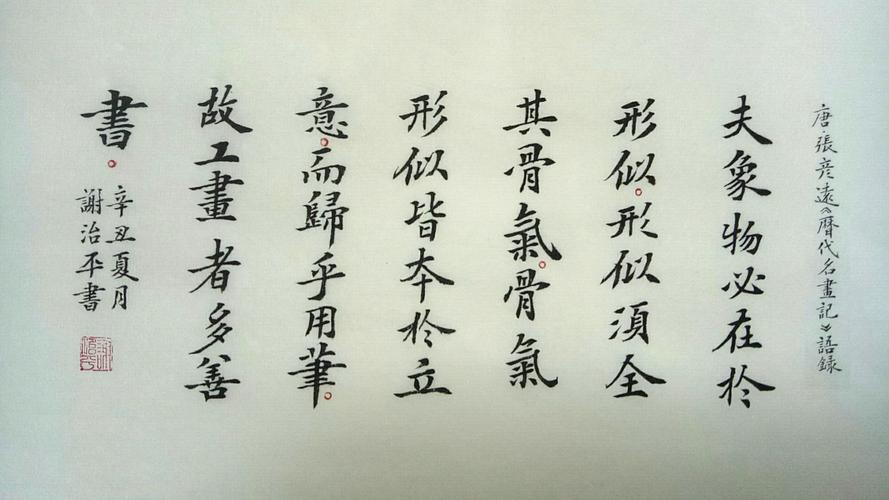 唐·張彦遠《曆代名畫記》語錄
夫象物必在於
形似。形似須全
其骨氣。骨氣
形似皆本於立
意。而歸乎用筆。
故工畫者多善
書。
辛丑夏月
謝治平書